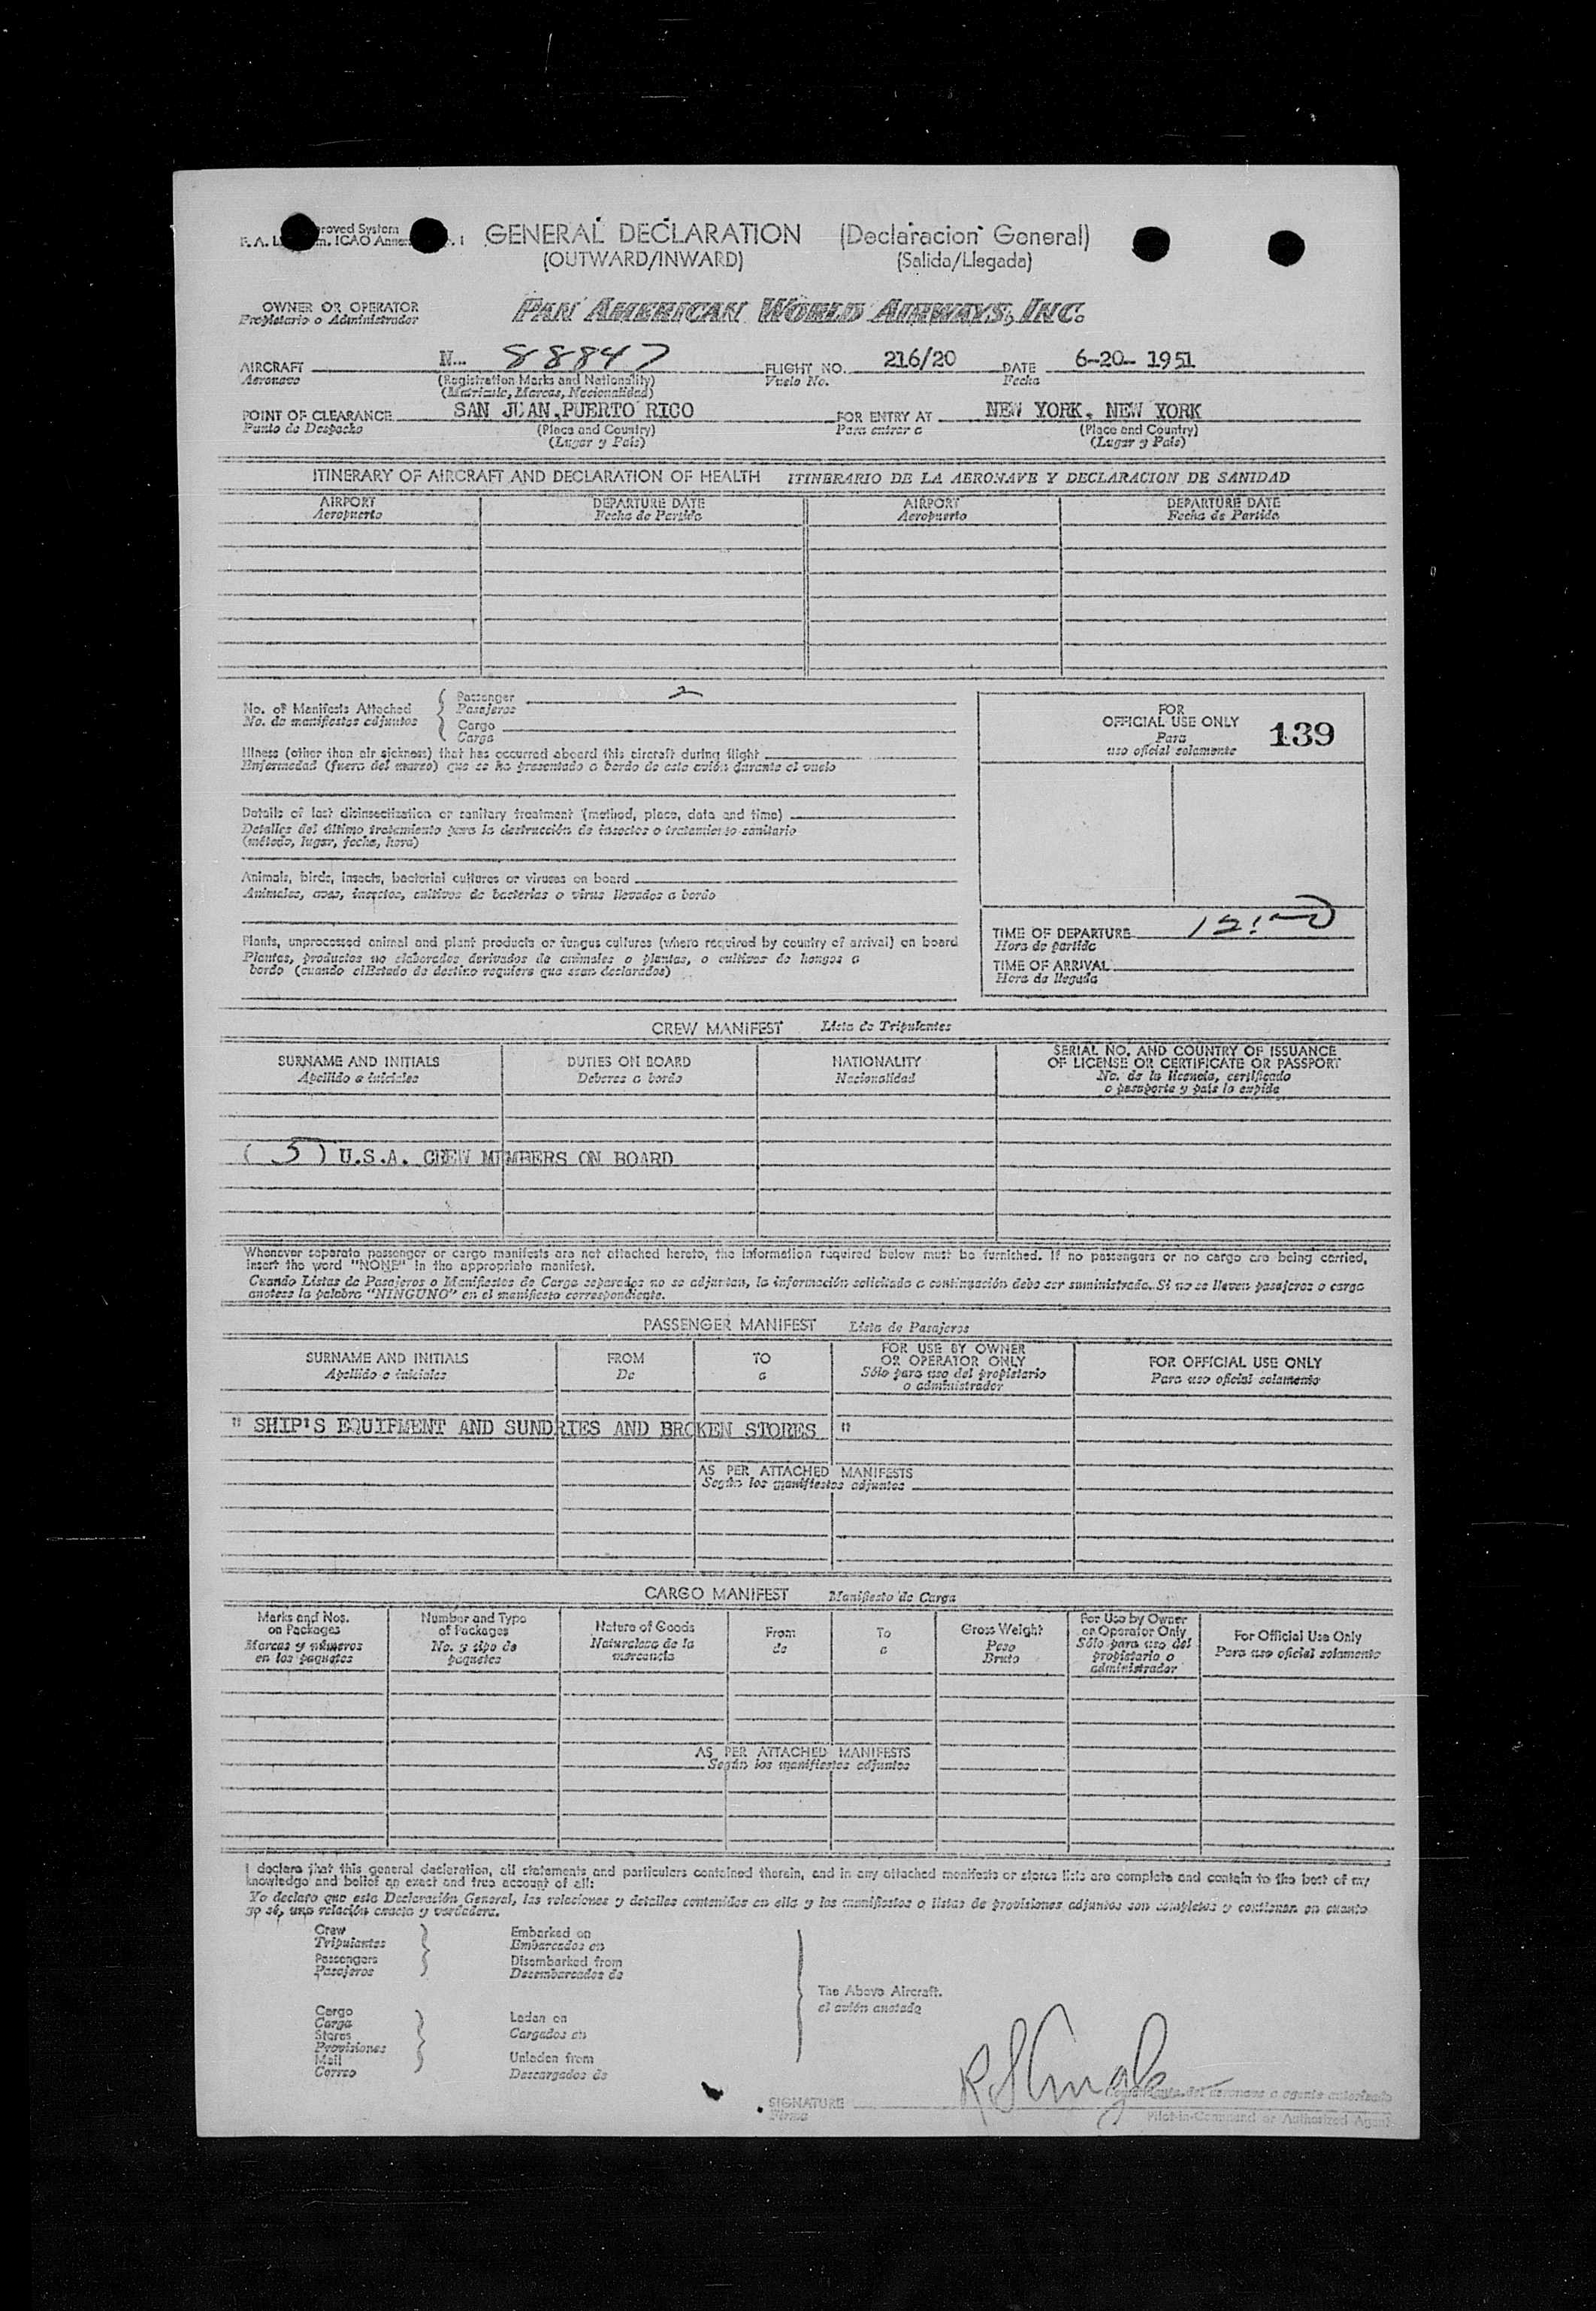 GENERAL DECLARATION (Declaracion General)
(OUTWARD/INWARD) (Salida/Llegada)
roved System
ICAO Annex
OWNER OR OPERATOR PAN AMERICAN WORLD AIRWAYS, INC.
Propietario o Administrador
AIRCRAFT N... 88847 FLIGHT NO. 216/20 DATE 6-20- 1951
Aeronave (Registration Marks and Nationality) Vuelo No. Fecha
(Matricula, Marcas, Nacionalidad)
POINT OF CLEARANCE SAN JUAN, PUERTO RICO FOR ENTRY AT NEW YORK, NEW YORK
Punto de Despacho (Place and Country) Para entrar a (Place and Country)
(Lugar y País) (Lugar y País)
ITINERARY OF AIRCRAFT AND DECLARATION OF HEALTH ITINERARIO DE LA AERONAVE Y DECLARACION DE SANIDAD
AIRPORT DEPARTURE DATE AIRPORT DEPARTURE DATE
Aeropuerto Fecha de Partida Aeropuerto Fecha de Partida
Passenger 2
No. of Manifests Attached Pasajeros
No. de manifiestos adjuntos Cargo
Carga
FOR
OFFICIAL USE ONLY 139
Para
uso oficial solamente
Illness (other than air sickness) that has occurred aboard this aircraft during flight
Enfermedad (fuera del mareo) que se ha presentado a bordo de este avión durante el vuelo
Details of last disinsectization or sanitary treatment (method, place, date and time)
Detalles del último tratamiento para la destrucción de insectos o tratamiento sanitario
(método, lugar, fecha, hora)
Animals, birds, insects, bacterial cultures or viruses on board
Animales, aves, insectos, cultivos de bacterias o virus llevados a bordo
Plants, unprocessed animal and plant products or fungus cultures (where required by country of arrival) on board
Plantas, productos no elaborados derivados de animales o plantas, o cultivos de hongos a
bordo (cuando el Estado de destino requiera que sean declarados)
TIME OF DEPARTURE
Hora de partida
TIME OF ARRIVAL
Hora de llegada
CREW MANIFEST Lista de Tripulantes
SURNAME AND INITIALS DUTIES ON BOARD NATIONALITY SERIAL NO. AND COUNTRY OF ISSUANCE
OF LICENSE OR CERTIFICATE OR PASSPORT
Apellido e iniciales Deberes a bordo Nacionalidad No. de la licencia, certificado
o pasaporte y país lo expide
( 5 ) U.S.A. CREW MEMBERS ON BOARD
Whenever separate passenger or cargo manifests are not attached hereto, the information required below must be furnished. If no passengers or no cargo are being carried,
insert the word "NONE" in the appropriate manifest.
Cuando Listas de Pasajeros o Manifiestos de Carga separados no se adjuntan, la información solicitada a continuación debe ser suministrada. Si no se llevan pasajeros o carga
anotese la palabra "NINGUNO" en el manifiesto correspondiente.
PASSENGER MANIFEST Lista de Pasajeros
SURNAME AND INITIALS FROM TO FOR USE BY OWNER OR OPERATOR ONLY FOR OFFICIAL USE ONLY
Apellido e iniciales De a Sólo para uso del propietario o administrador Para uso oficial solamente
" SHIP'S EQUIPMENT AND SUNDRIES AND BROKEN STORES "
AS PER ATTACHED MANIFESTS
Según los manifiestos adjuntos
CARGO MANIFEST Manifiesto de Carga
Marks and Nos. on Packages Number and Type of Packages Nature of Goods From To Gross Weight For Use by Owner or Operator Only For Official Use Only
Marcas y números en los paquetes No. y tipo de paquetes Naturaleza de la mercancia de a Peso Bruto Sólo para uso del propietario o administrador Para uso oficial solamente
AS PER ATTACHED MANIFESTS
Según los manifiestos adjuntos
I declare that this general declaration, all statements and particulars contained therein, and in any attached manifests or stores lists are complete and contain to the best of my
knowledge and belief an exact and true account of all:
Yo declaro que esta Declaración General, las relaciones y detalles contenidos en ella y los manifiestos o listas de provisiones adjuntos son completos y contienen en cuanto
yo sé, una relación exacta y verdadera.
Crew Embarked on
Tripulantes Embarcados en
Passengers Disembarked from
Pasajeros Desembarcados de
The Above Aircraft.
el avión anotado
Cargo Laden on
Carga Cargados en
Stores
Provisiones
Mail Unladen from
Correo Descargados de
SIGNATURE
Firma
Comandante del aeronave o agente autorizado
Pilot-in-Command or Authorized Agent